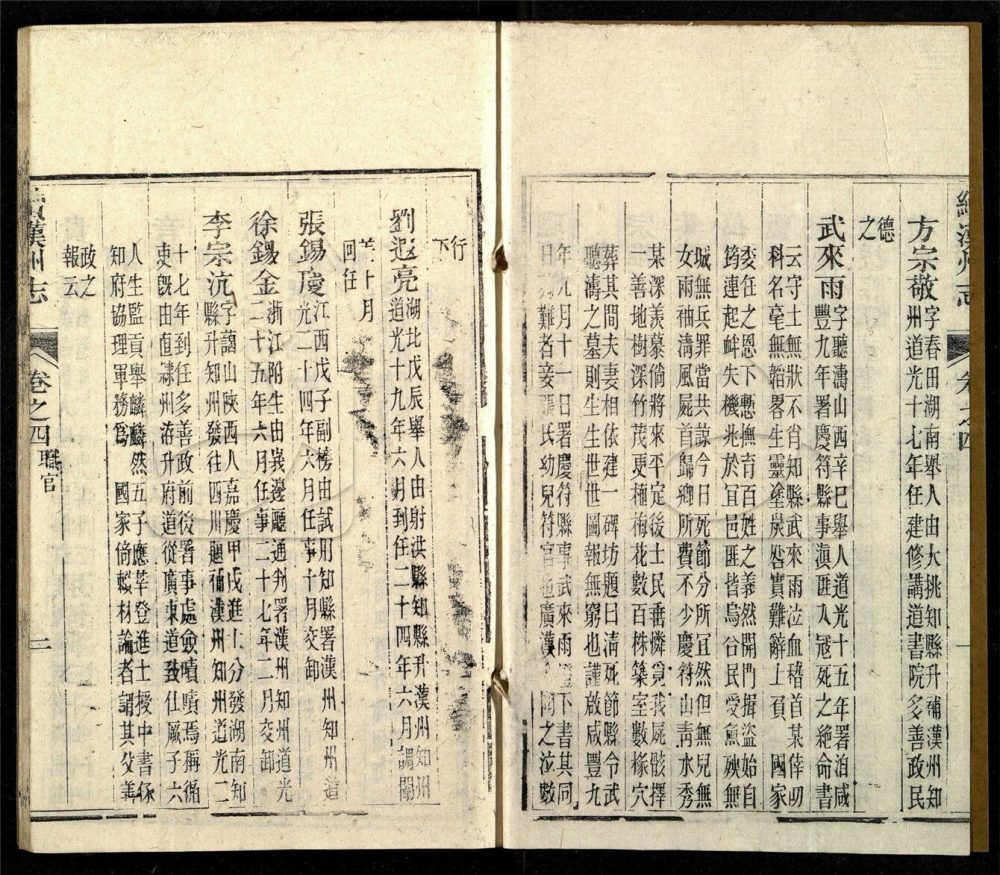 續漢州志
卷之四
方宗敬
字春田湖南舉人由大挑知縣升補漢州知
州道光十七年任建修講道書院多善政民
德
之
武來雨
字聽濤山西辛巳舉人道光十五年署泊咸
豐九年署慶符縣事滇匪入冦死之絕命書
云守土無狀不肖知縣武來雨泣血稽首某倖叨
科名毫無韜畧生靈塗炭咎實難辭上負 國家
委任之恩下慙撫育百姓之義然開門揖盜始自
筠連起衅失機兆於宜邑匪皆烏合民受魚殃無
城無兵罪當共諒今日死節分所宜然但無兒無
女兩袖清風屍首歸鄉所費不少慶符山青水秀
某深羨慕倘將來平定後士民垂憐覓我屍骸擇
一善地樹深竹茂更植梅花數百株築室數椽穴
葬其間夫妻相依建一碑坊題曰清死節縣令武
聽濤之墓則生生世世圖報無窮也謹啟咸豐九
年九月十一日署慶符縣事武來雨下書其同
日難者妾張氏幼兒符官也廣漢聞之泣數
行
下
劉遐亮
湖北戊辰舉人由射洪縣知縣升漢州知州
道光十九年六月到任二十四年六月調閬
差十月
回任
張錫慶
江西戊子副榜由試用知縣署漢州知州道
光二十四年六月任事十月交卸
徐錫金
浙江附生由峩邊廳通判署漢州知州道光
二十五年六月任事二十七年二月交卸
李宗沆
字謐山陝西人嘉慶甲戌進士分發湖南知
縣升知州發往四川題補漢州知州道光二
十七年到任多善政前後署事處僉嘖嘖焉稱循
吏旣由直隸州洊升府道從廣東道致仕厥子六
人生監貢舉麟麟然五子應莘登進士授中書係
知府協理軍務爲 國家倚材論者謂其父善
政之
報云
續漢州志
卷之四
職官
二